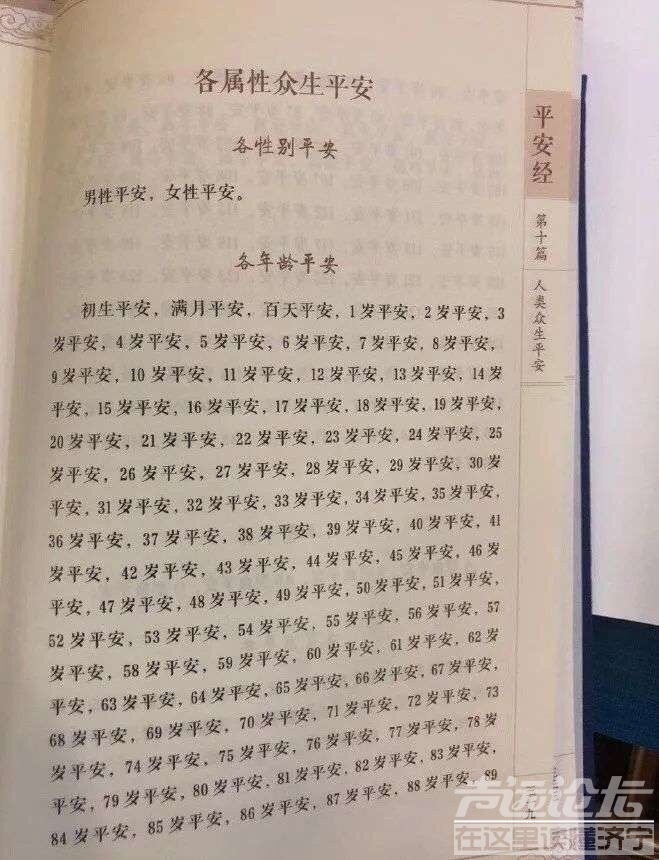 各属性众生平安
各性别平安
男性平安，女性平安。
各年龄平安
初生平安，满月平安，百天平安，1岁平安，2岁平安，3
岁平安，4岁平安，5岁平安，6岁平安，7岁平安，8岁平安，
9岁平安，10岁平安，11岁平安，12岁平安，13岁平安，14岁
平安，15岁平安，16岁平安，17岁平安，18岁平安，19岁平安，
20岁平安，21岁平安，22岁平安，23岁平安，24岁平安，25
岁平安，26岁平安，27岁平安，28岁平安，29岁平安，30岁
平安，31岁平安，32岁平安，33岁平安，34岁平安，35岁平安，
36岁平安，37岁平安，38岁平安，39岁平安，40岁平安，41
岁平安，42岁平安，43岁平安，44岁平安，45岁平安，46岁
平安，47岁平安，48岁平安，49岁平安，50岁平安，51岁平安，
52岁平安，53岁平安，54岁平安，55岁平安，56岁平安，57
岁平安，58岁平安，59岁平安，60岁平安，61岁平安，62岁
平安，63岁平安，64岁平安，65岁平安，66岁平安，67岁平安，
68岁平安，69岁平安，70岁平安，71岁平安，72岁平安，73
岁平安，74岁平安，75岁平安，76岁平安，77岁平安，78岁
平安，79岁平安，80岁平安，81岁平安，82岁平安，83岁平安，
84岁平安，85岁平安，86岁平安，87岁平安，88岁平安，89
平安经
第十篇
人类众生平安
在这里读懂济宁